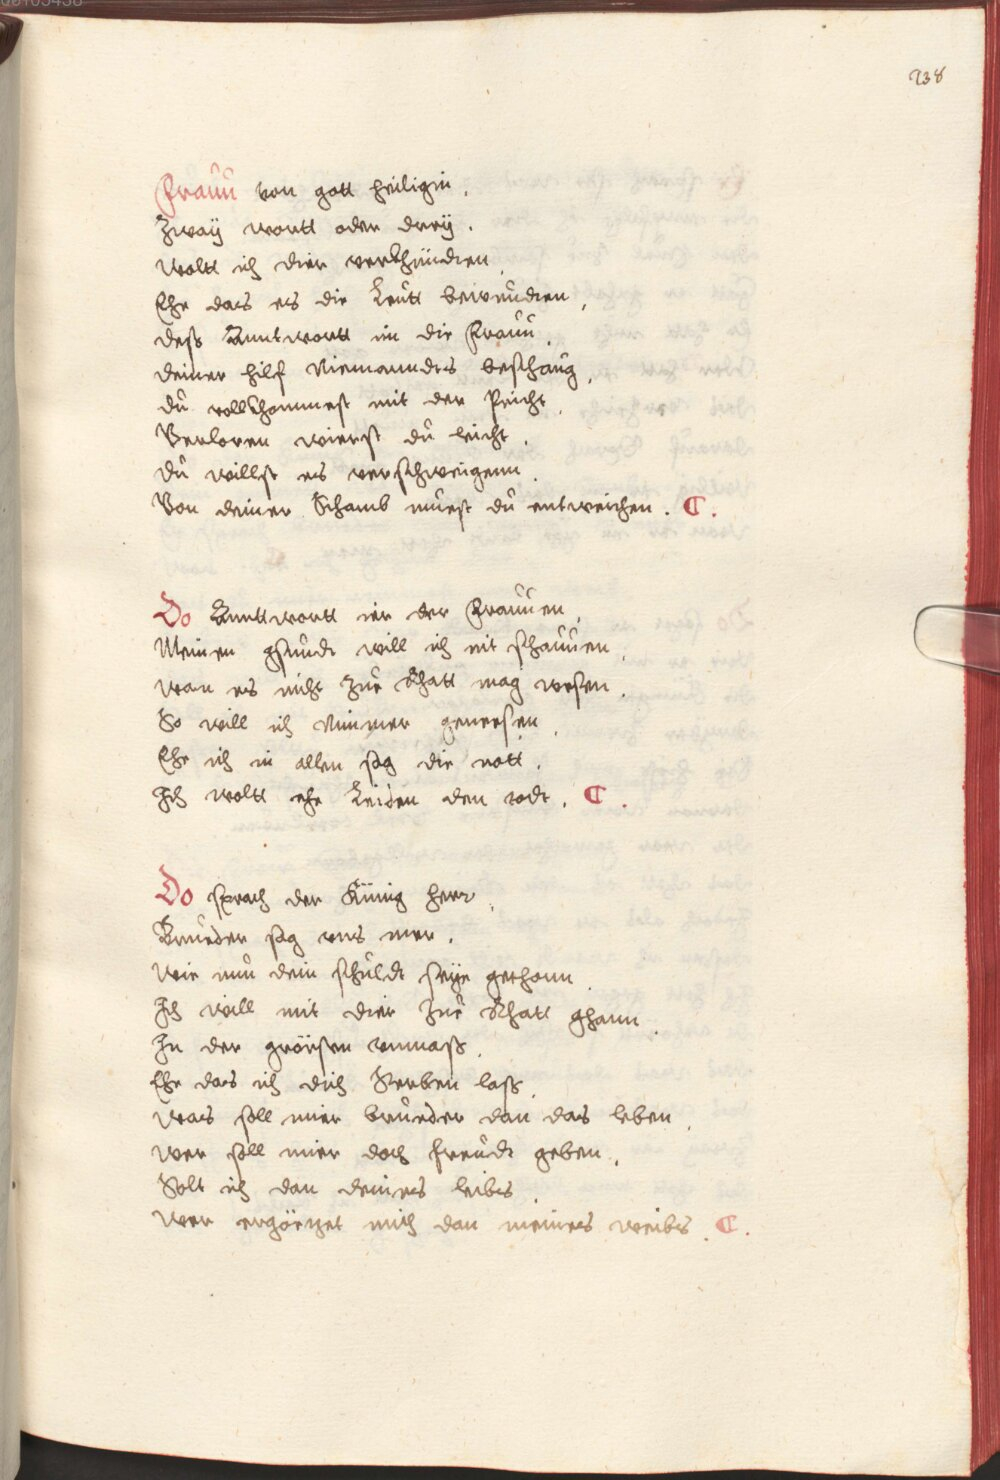 238
Frauu von gott heiligin.
Zwaÿ wortt oder dreÿ.
Woltt ich dier verkhündien.
Ehe das es die Leutt bewundien.
Dess Anntwortt im die Frauu.
Deiner hilf Niemanndts beschaug.
Du vollkhommest mit der Pricht.
Verloren wierst du leicht.
Du willst es verschweigenn.
Von deiner Schamb muest du entweichen. C.
Do Anttwortt ier der Frauuen.
Meinen gsundt will ich nit schauuen.
Wan es nicht zue Rhatt mag wesen.
So will ich Nimmer genessen.
Ehe ich in allen sag die nott.
Ich woltt ehe Leiden den todt. C.
Do sprach der Künig herr.
Brueder sag uns mer.
Wie nun dein schuldt seÿe gethonn.
Ich will mit dier zue Rhatt ghann.
In der grössen unmass.
Ehe das ich dich Sterben lass.
Was soll mier brueder dan das leben.
Wer soll mier doch freudt geben.
Solt ich dan deines leibs.
Wer ergötzet mich dan meines weibs. C.